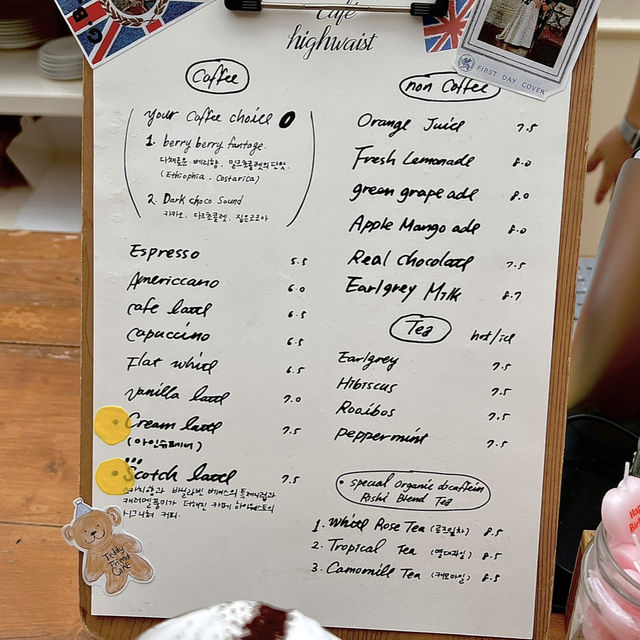 café
highwaist
FIRST DAY COVER
Coffee
your Coffee choice
1. berry berry fantage.
다채로운 베리향, 밀크초콜렛의 단맛.
(Ethiophia. Costarica)
2. Dark choco Sound
카카오. 다크초콜렛. 짙은코코아
Espresso 5.5
Americcano 6.0
cafe latte 6.5
Capuccino 6.5
Flat white 6.5
Vanilla latte 7.0
Cream latte 7.5
(아인슈페너)
Scotch latte 7.5
시그니쳐 커피.
non Coffee
Orange Juice 7.5
Fresh Lemonade 8.0
green grape ade 8.0
Apple Mango ade 8.0
Real chocolate 7.5
Earlgrey Milk 8.7
Tea hot/ice
Earlgrey 7.5
Hibiscus 7.5
Rooibos 7.5
peppermint 7.5
• special Organic decaffein
Rishi Blend Tea
1. White Rose Tea (로즈잎차) 8.5
2. Tropical Tea (열대과일) 8.5
3. Camomile Tea (캐모마일) 8.5
Teddy
Friend
Cake